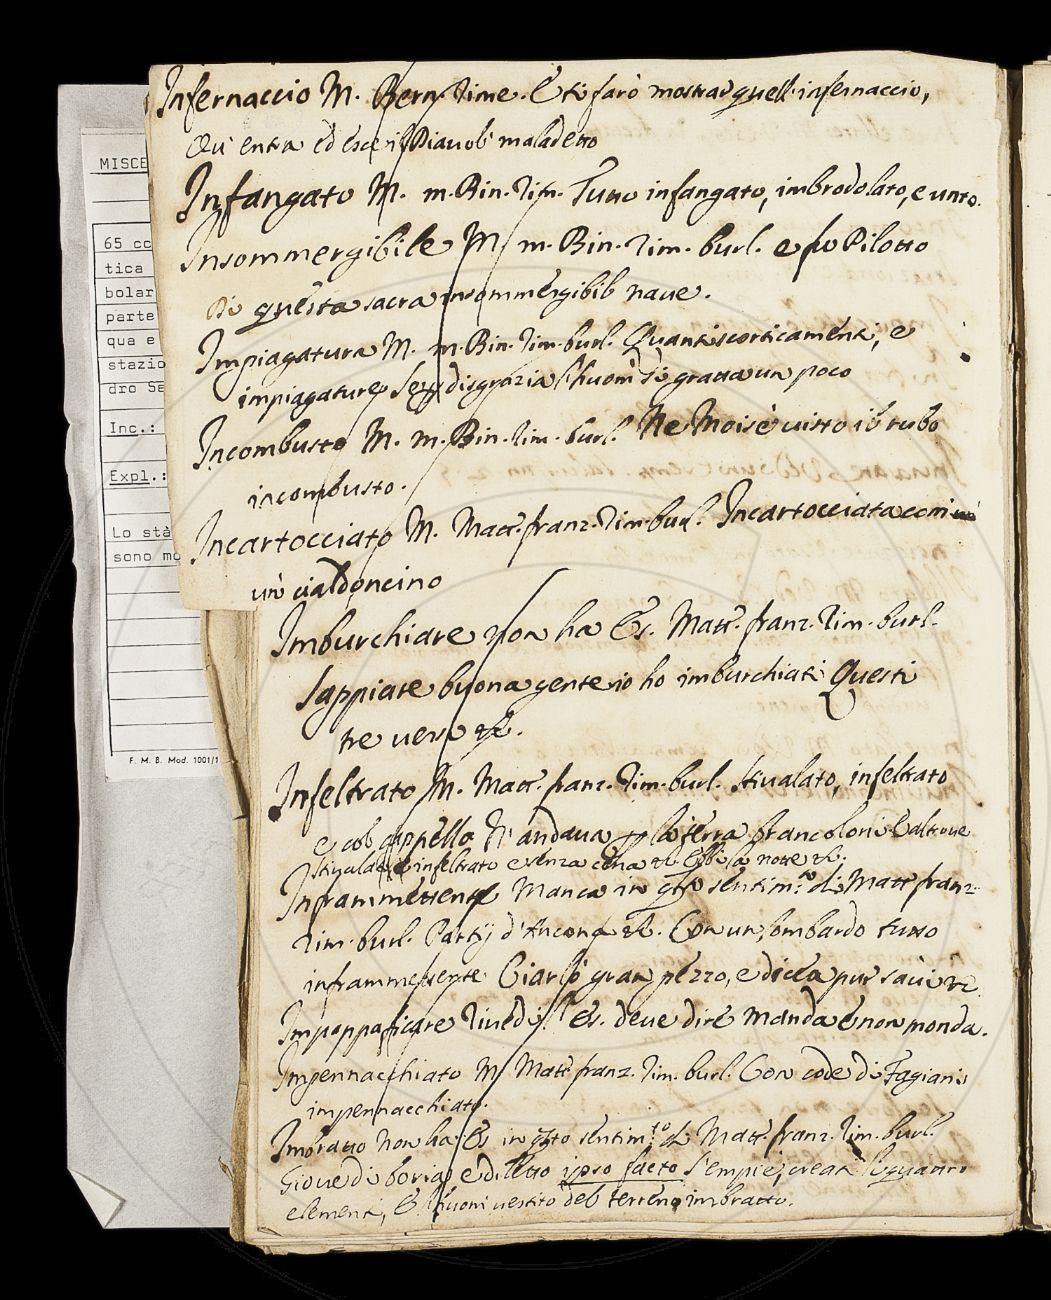 Infernaccio M. Bern. Rime. E ti farò mostrar quell'infernaccio,
Qu' entra ed esce il Diavol maladetto
Infangato M. m. Bin. Rim. Tutto infangato, imbrodolato, e unto.
Insommergibile M. m. Bin. Rim. burl. e fu Piloto
Di questa sacra insommergibil naue.
Impiagatura M. m. Bin. Rim. burl. Quanti scorticamenti, e
impiagature, se per disgrazia l'huom si gratta un poco
Incombusto M. m. Bin. Rim. burl. Ne Moisè uisto il rubo
incombusto.
Incartocciato M. Matt. franz. Rim. burl. Incartocciata com
un cialdoncino
Imburchiare non ha Es. Matt. franz. Rim. burl.
Sappiate buona gente io ho imburchiati Questi
tre uersi &c.
Infeltrato M. Matt. franz. Rim. burl. Stiualato, infeltrato
e col cappello N' andaua p la terra francolori e altroue
Stiualato e infeltrato e senza cena &c. Ebbi la notte &c.
Inframmettente Manca in qsto sentim.to di Matt. franz.
Rim. burl. Partij d'Ancona &c. Con un lombardo tutto
inframmettente Ciarlò gran pezzo, e dicea pur
Impoppaficare Riuedi l'Es. deue dire manda e non monda.
Impennacchiato M. Matt. franz. Rim. burl. Con code di Fagiani
impennacchiato.
Imbratto Non ha Es. in qsto sentim.to di Matt. franz. Rim. burl.
Gioue di boria e diletto ipso facto s'empiè, creati li quattro
elementi, E l'huom uestito del terreno imbratto.
MISCE
65 cc
tica
bolar
parte
qua e
stazio
dro Sa
Inc.:
Expl.:
Lo stà
sono mo
F. M. B. Mod. 1001/1